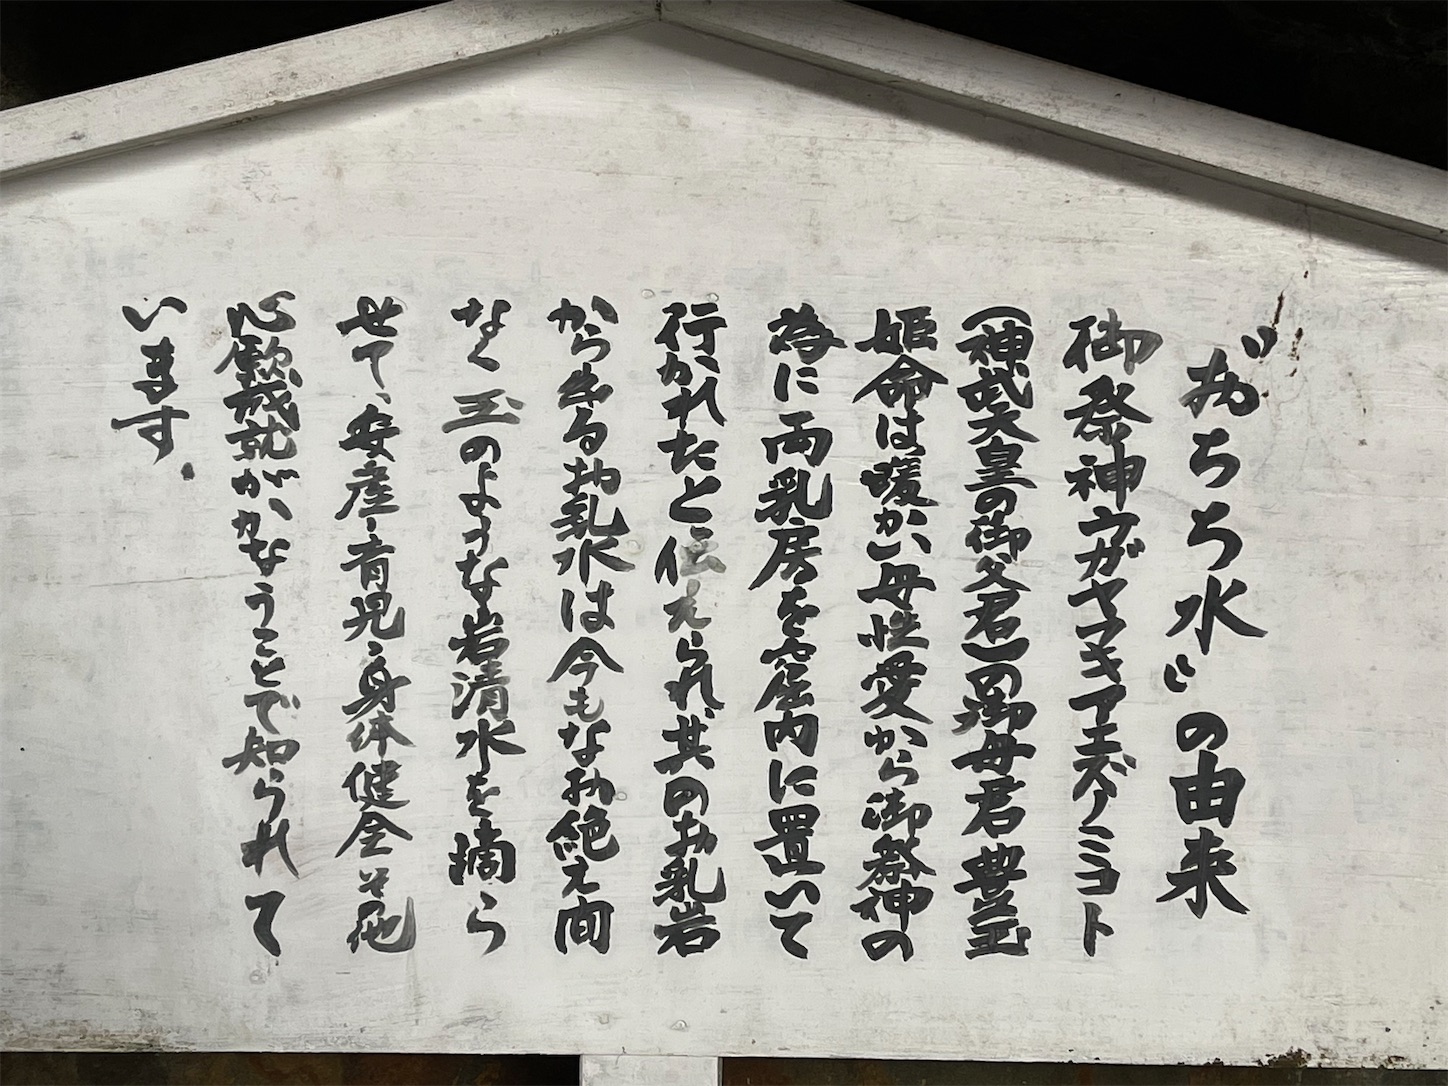 "おちち水"の由来
御祭神ウガヤフキアエズノミコト
(神武天皇の御父君)の御母君豊玉
姫命は暖かい母性愛から御祭神の
為に両乳房を窟内に置いて
行かれたと伝えられ、其のお乳岩
から出るお乳水は今もなお絶え間
なく玉のような岩清水を滴ら
せて、安産、育児、身体健全その他
心願成就がかなうことで知られて
います。